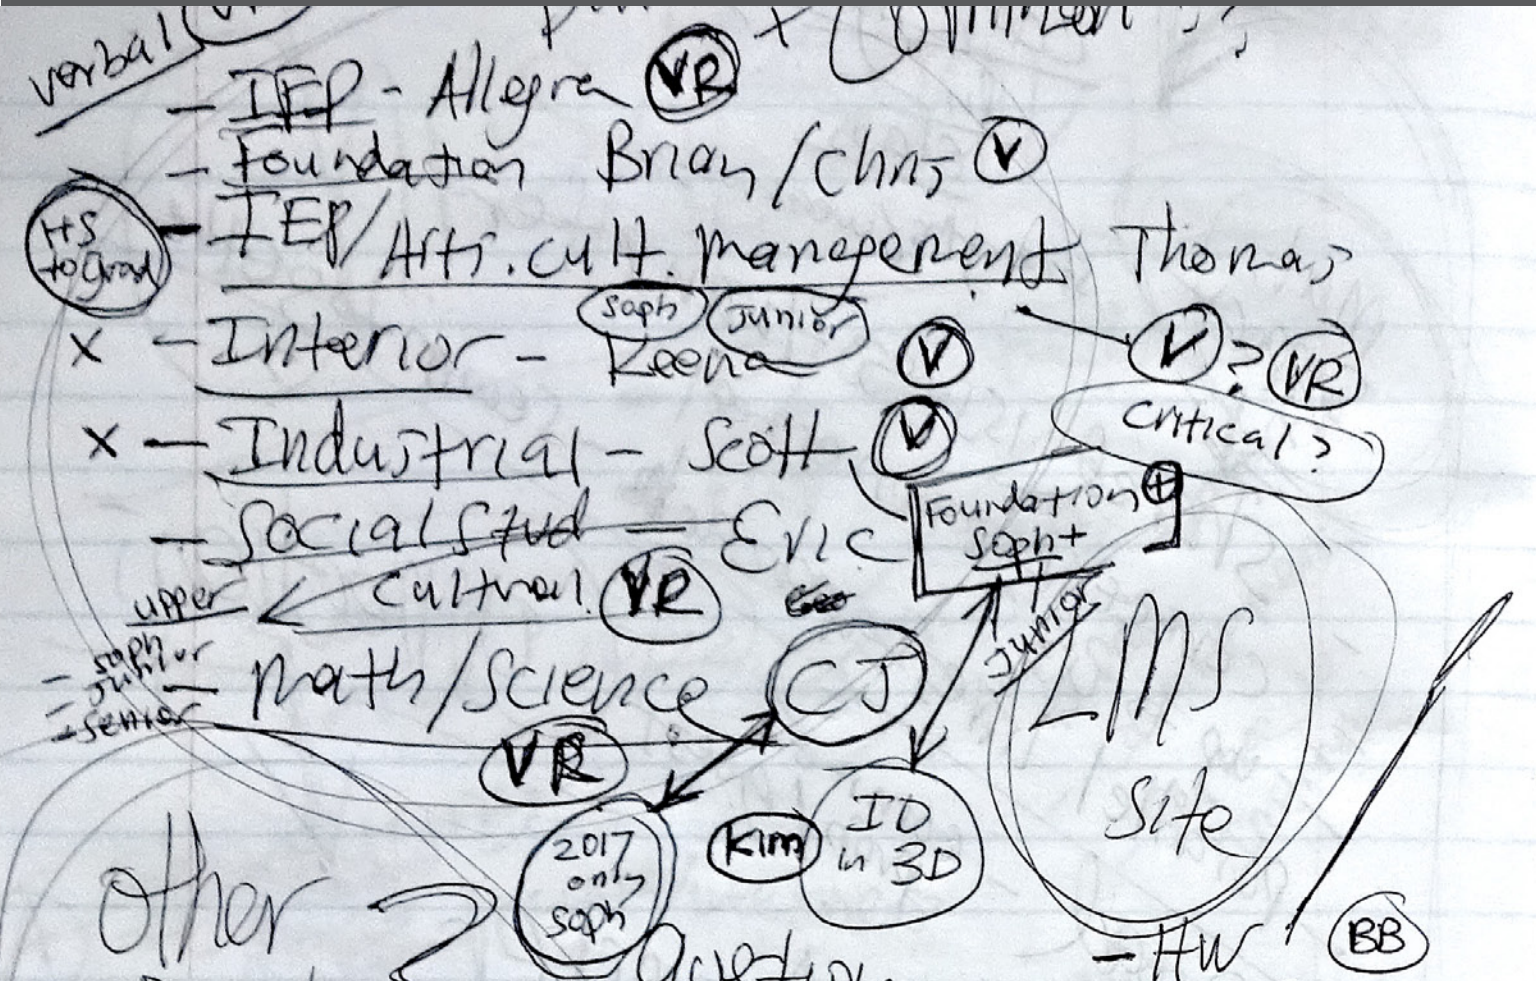 verbal
- IEP - Allegra VR
- Foundation Brian/Chris V
HS to grad
- IEP/Arts.cult.management Thomas
soph junior
x - Interior - Keena V
V? VR
critical?
x - Industrial - Scott V
Foundation +
soph+
junior
- Social Stud - Eric
cultural VR
upper
- soph
- junior
- senior
- math/science CJ
VR
LMS
site
2017
only
soph
Kim
ID
in 3D
other
- HW
BB